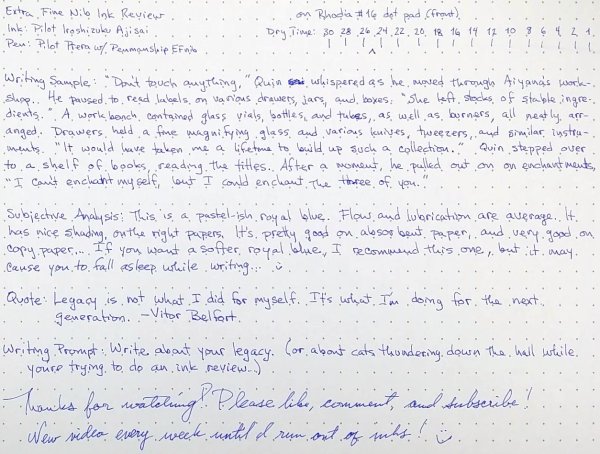 Extra Fine Nib Ink Review
on Rhodia #16 dot pad (front)
Ink: Pilot Iroshizuku Ajisai
Dry Time: 30 28 26 24 22 20 18 16 14 12 10 8 6 4 2 1
Pen: Pilot Prera w/ Penmanship EF nib
Writing Sample: "Don't touch anything," Quin whispered as he moved through Aiyana's work-
shop. He paused to read labels on various drawers, jars, and boxes. "She left stocks of stable ingre-
dients." A work bench contained glass vials, bottles, and tubes, as well as burners, all neatly arr-
anged. Drawers held a fine magnifying glass and various knives, tweezers, and similar instru-
ments. "It would have taken me a lifetime to build up such a collection." Quin stepped over
to a shelf of books, reading the titles. After a moment, he pulled out on on enchantments,
"I can't enchant myself, but I could enchant the three of you."
Subjective Analysis: This is a pastel-ish royal blue. Flow and lubrication are average. It
has nice shading on the right papers. It's pretty good on absorbent paper, and very good on
copy paper... If you want a softer royal blue, I recommend this one, but it may
cause you to fall asleep while writing... :)
Quote: Legacy is not what I did for myself. It's what I'm doing for the next
generation. -Vitor Belfort
Writing Prompt: Write about your legacy. (or about cats thundering down the hall while
you're trying to do an ink review.)
Thanks for watching! Please like, comment, and subscribe!
New video every week until I run out of inks! :)